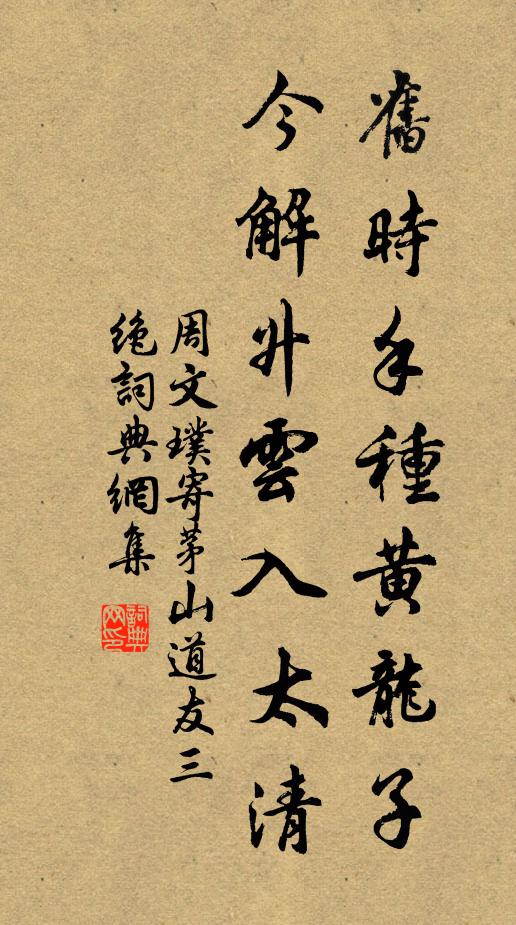 舊時手種黄龍子
今解升雲入太清
周文璞寄茅山道友三
绝詞典網集
詞典網印